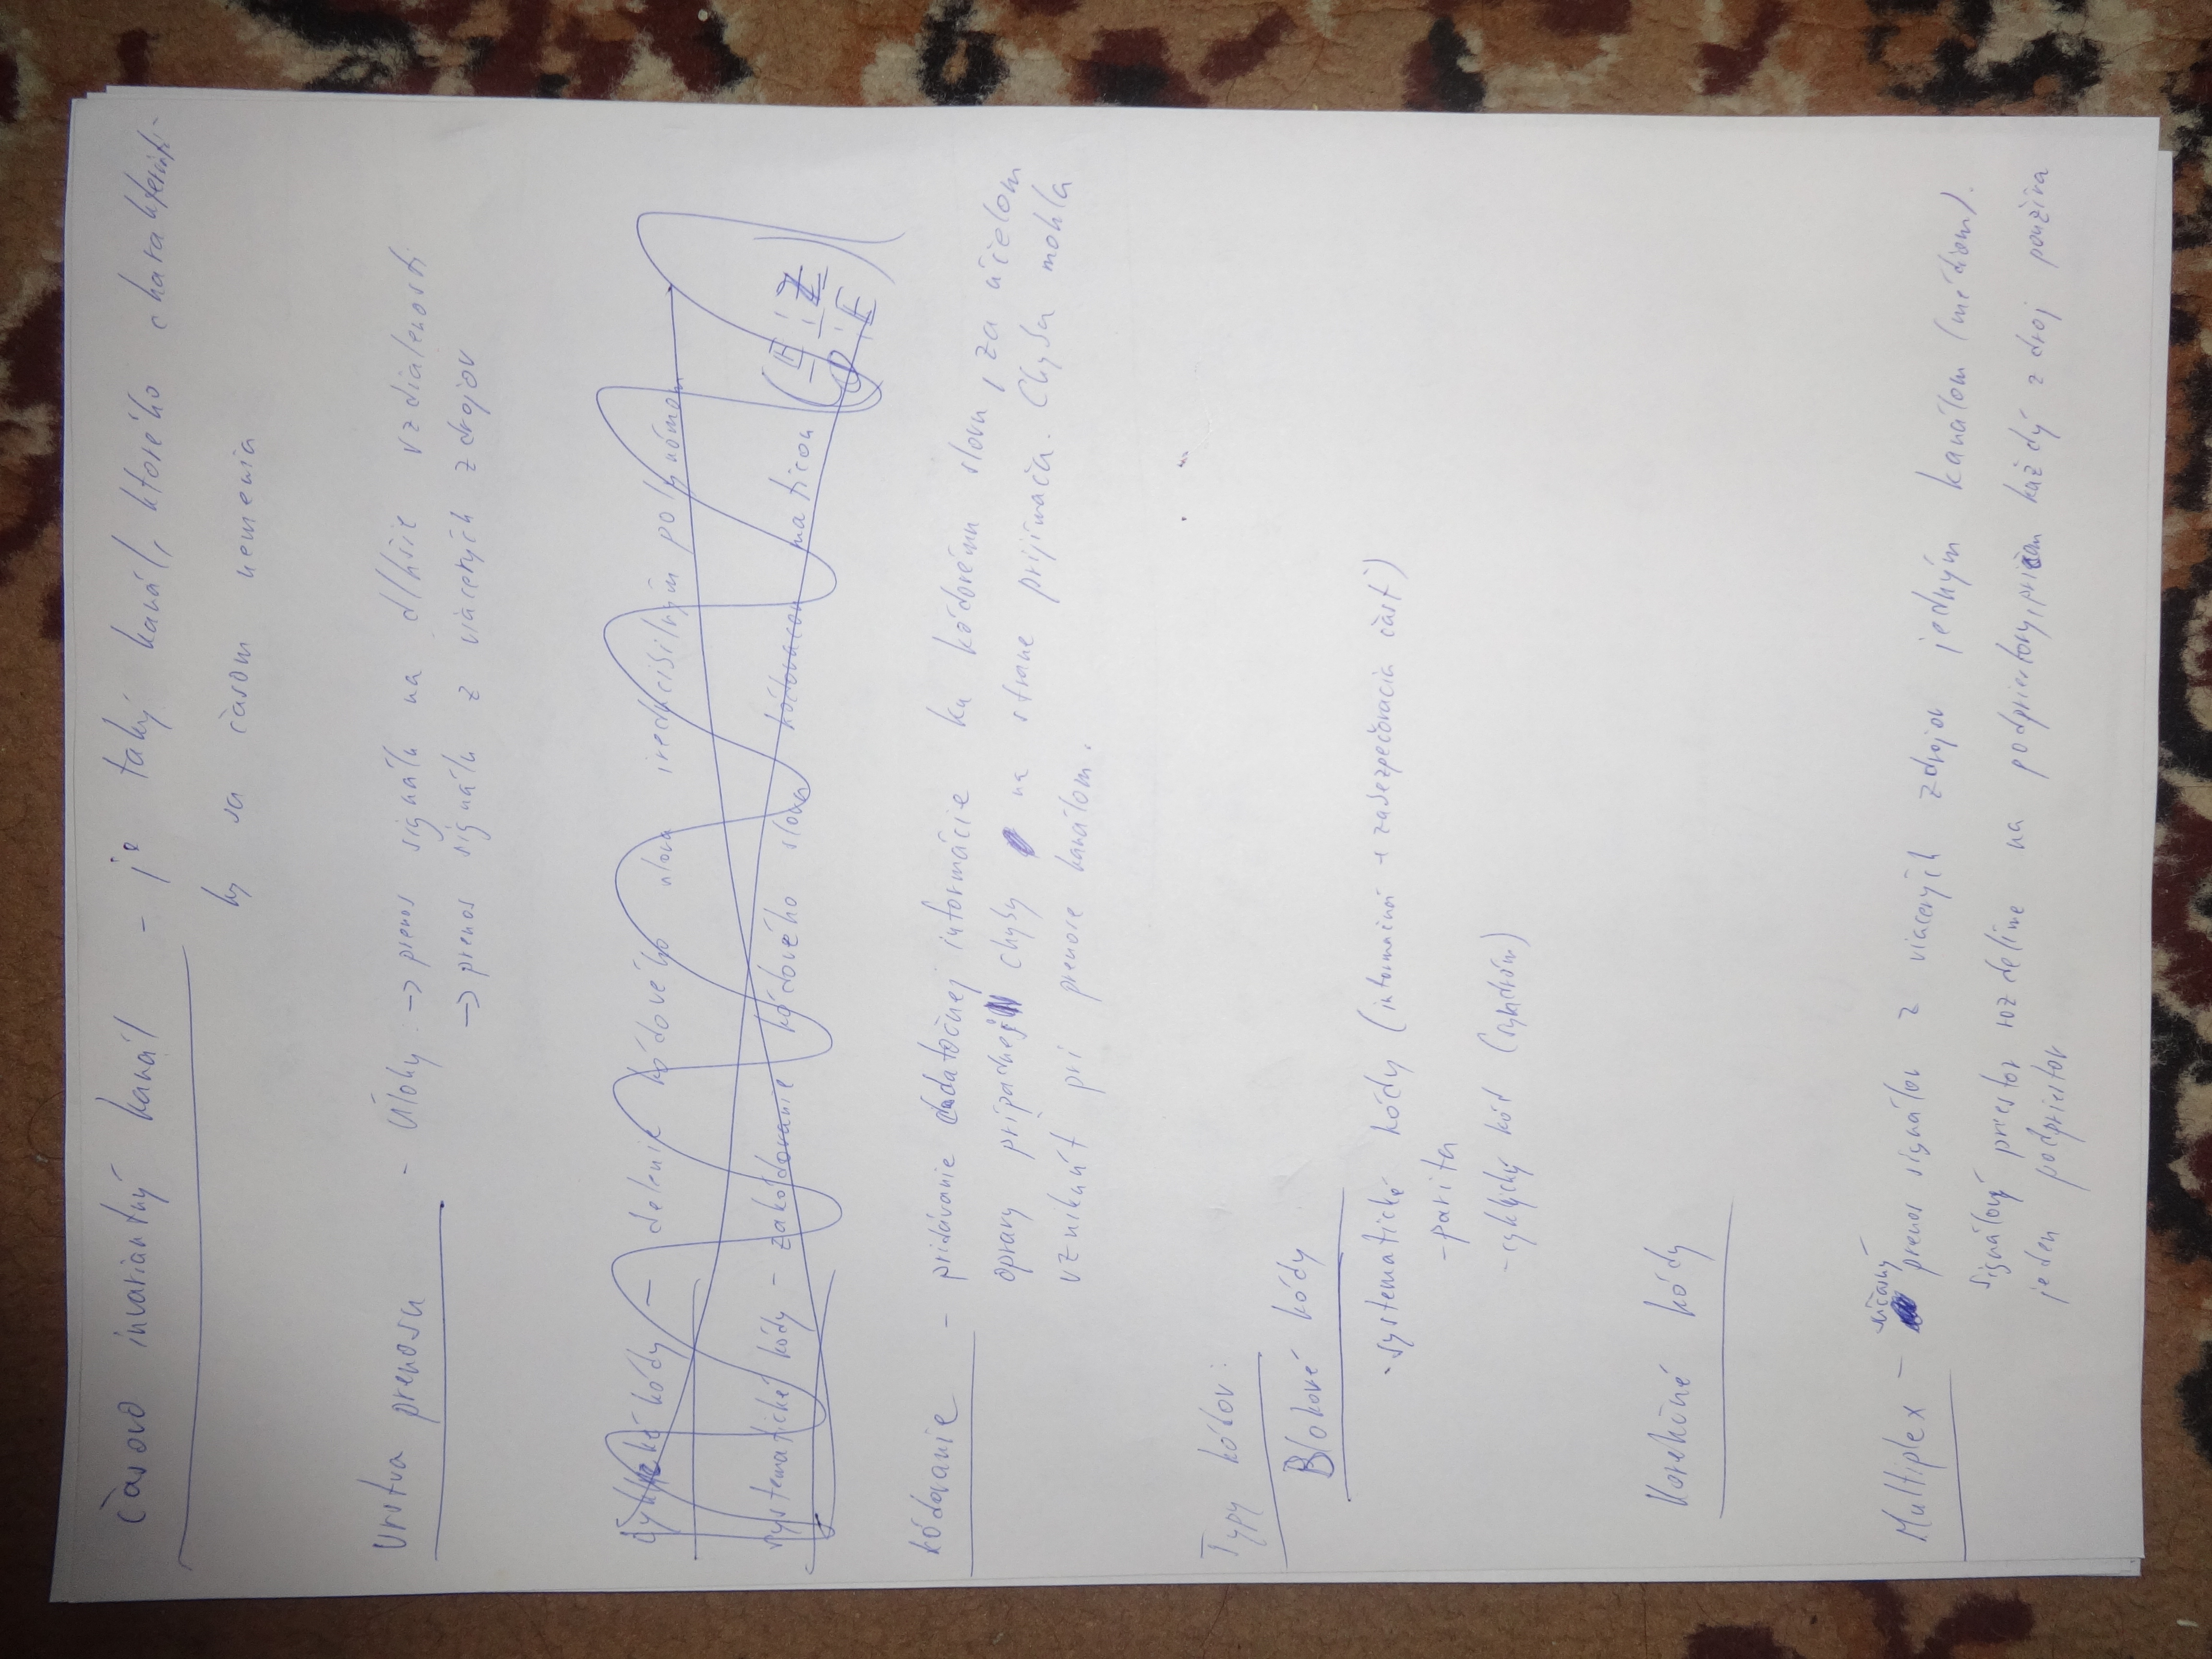 časovo invariantný kanál - je taký kanál, ktorého charakteristi-
ky sa časom nemenia
Vrstva prenosu - Úlohy -> prenos signálu na dlhšie vzdialenosti
-> prenos signálu z viacerých zdrojov
cyklické kódy - delenie kódového slova ireducibilným polynómom
systematické kódy - zakódovanie kódového slova kódovacou maticou (E ¦ Z
0 ¦ E)
kódovanie - pridávanie dodatočnej informácie ku kódovému slovu, za účelom
opravy prípadnej chyby na strane prijímača. Chyba mohla
vzniknúť pri prenose kanálom.
Typy kódov:
Blokové kódy
- systematické kódy (informačná + zabezpečovacia časť)
- parita
- cyklický kód (syndróm)
Korekčné kódy
súčasný
Multiplex - prenos signálov z viacerých zdrojov jedným kanálom (médiom).
Signálový priestor rozdelíme na podpriestory, pričom každý zdroj používa
jeden podpriestor